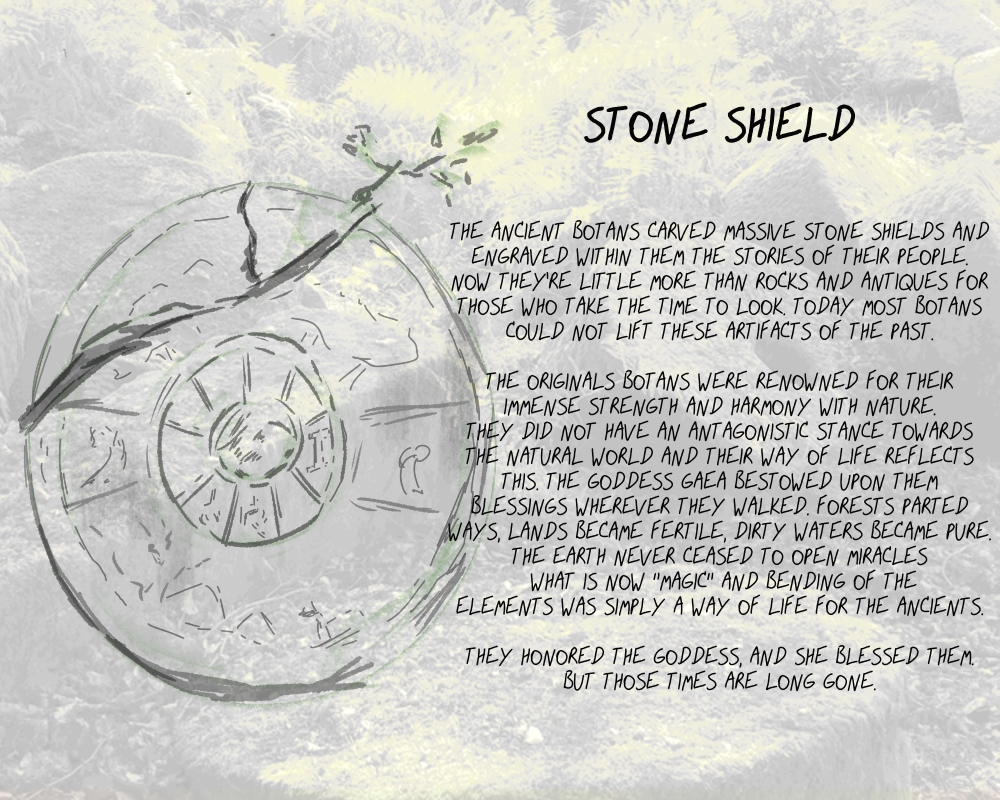 STONE SHIELD
THE ANCIENT BOTANS CARVED MASSIVE STONE SHIELDS AND
ENGRAVED WITHIN THEM THE STORIES OF THEIR PEOPLE.
NOW THEY'RE LITTLE MORE THAN ROCKS AND ANTIQUES FOR
THOSE WHO TAKE THE TIME TO LOOK. TODAY MOST BOTANS
COULD NOT LIFT THESE ARTIFACTS OF THE PAST.
THE ORIGINALS BOTANS WERE RENOWNED FOR THEIR
IMMENSE STRENGTH AND HARMONY WITH NATURE.
THEY DID NOT HAVE AN ANTAGONISTIC STANCE TOWARDS
THE NATURAL WORLD AND THEIR WAY OF LIFE REFLECTS
THIS. THE GODDESS GAEA BESTOWED UPON THEM
BLESSINGS WHEREVER THEY WALKED. FORESTS PARTED
WAYS, LANDS BECAME FERTILE, DIRTY WATERS BECAME PURE.
THE EARTH NEVER CEASED TO OPEN MIRACLES
WHAT IS NOW "MAGIC" AND BENDING OF THE
ELEMENTS WAS SIMPLY A WAY OF LIFE FOR THE ANCIENTS.
THEY HONORED THE GODDESS, AND SHE BLESSED THEM.
BUT THOSE TIMES ARE LONG GONE.